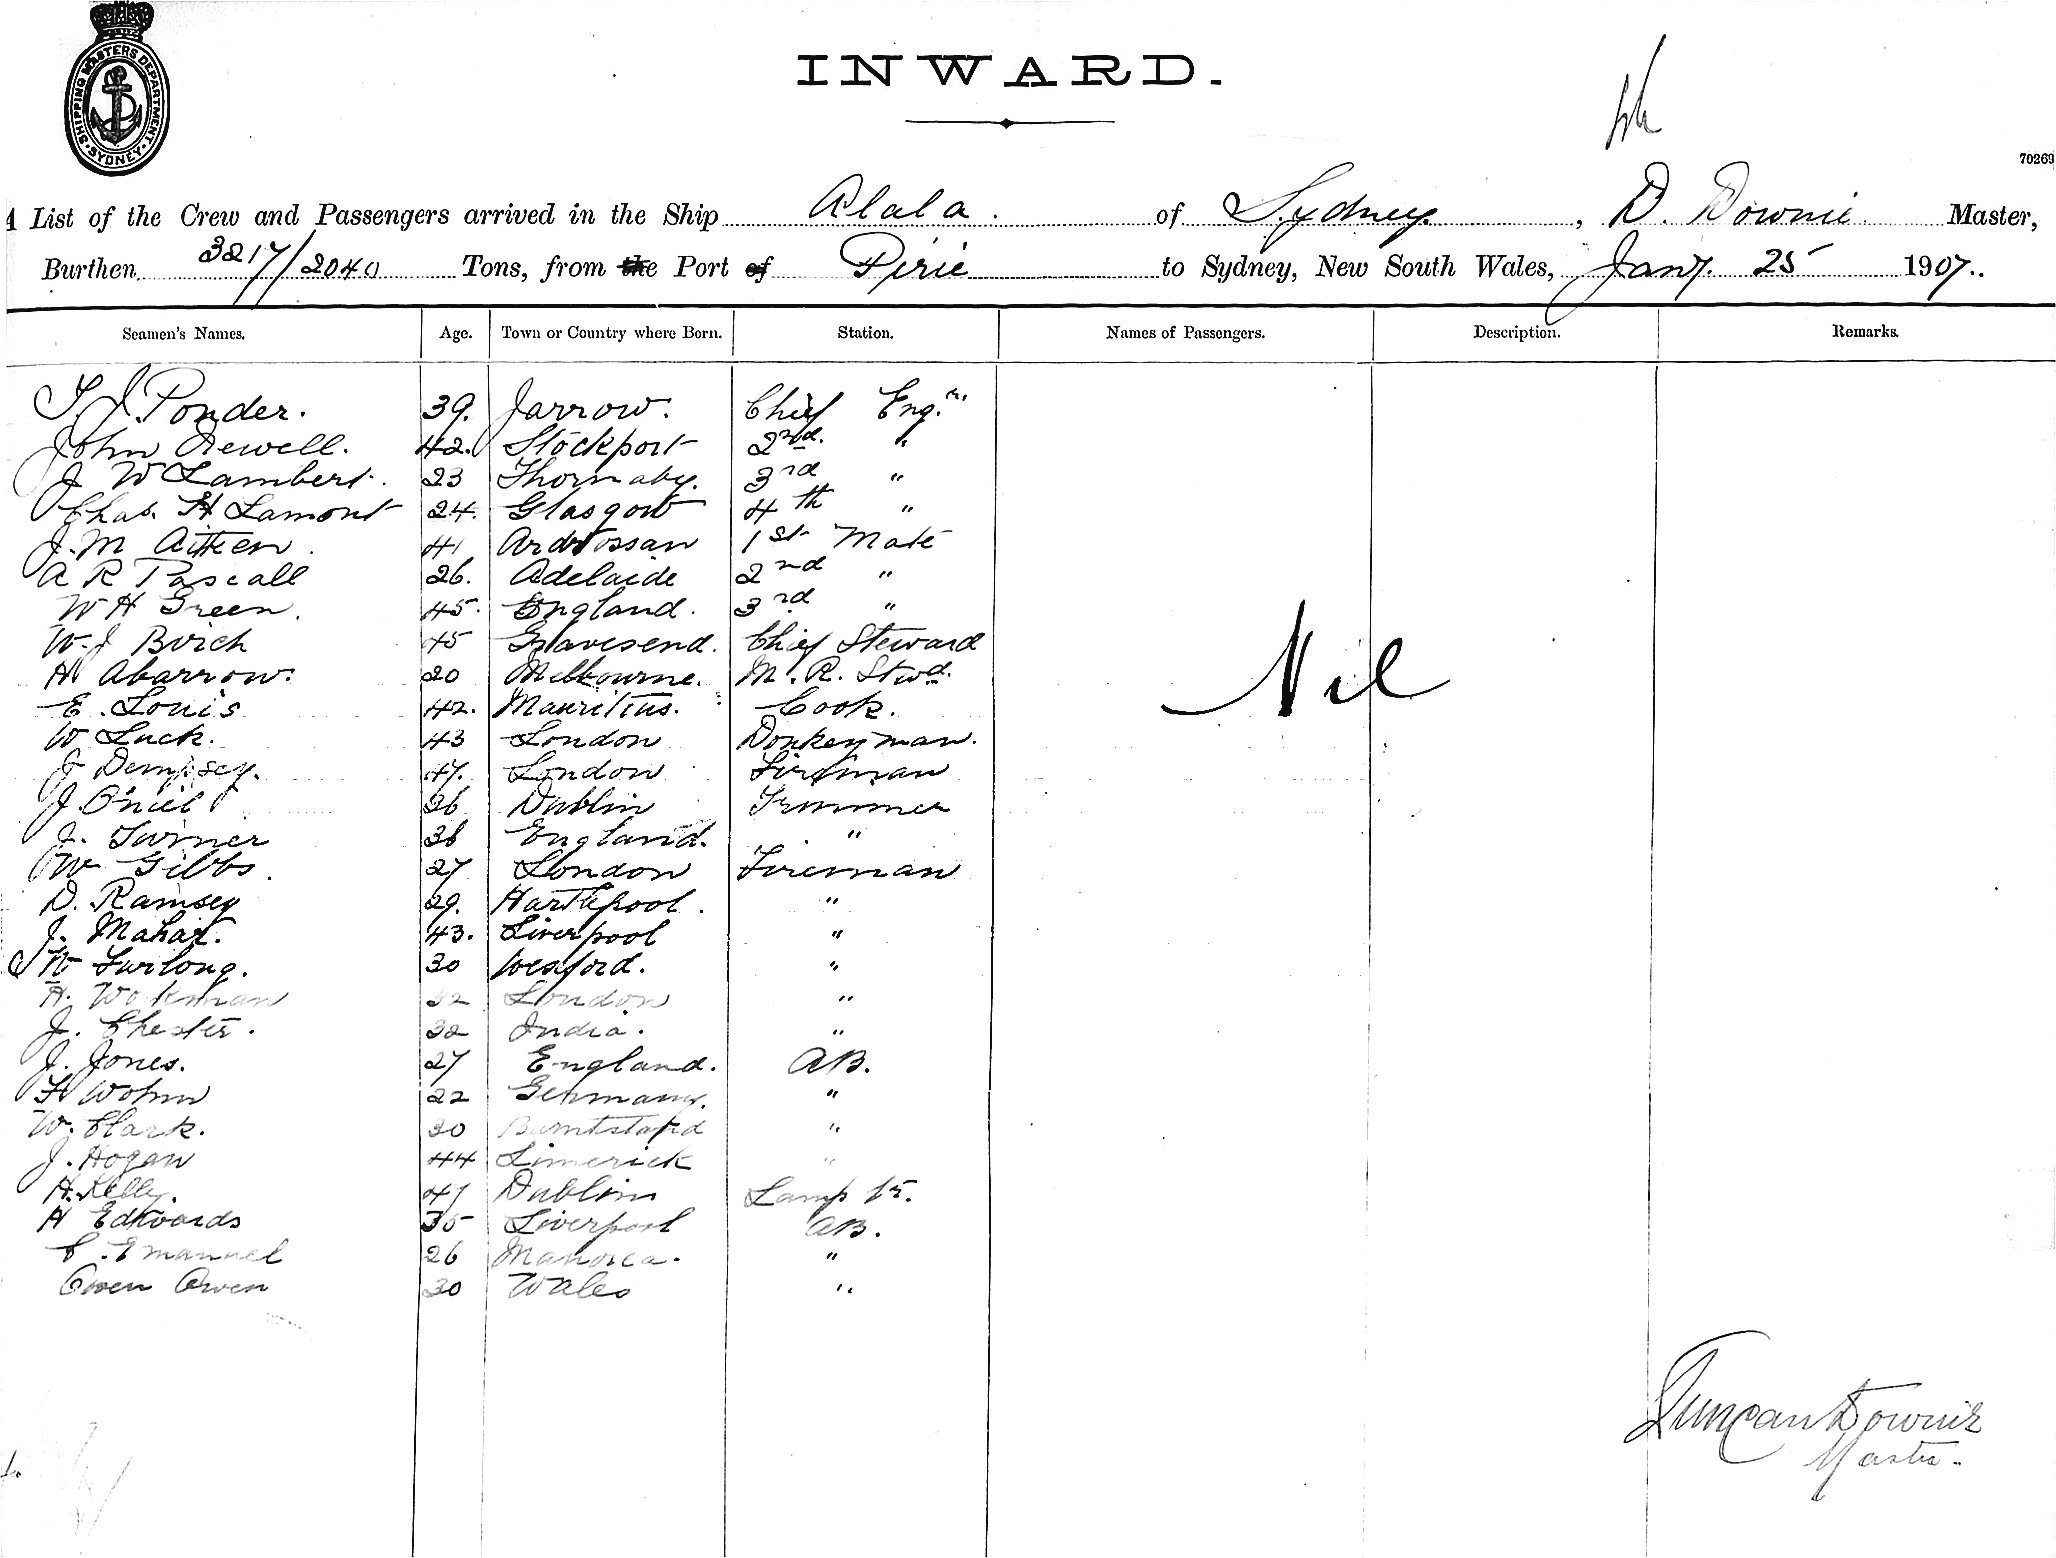 SHIPPING MASTERS DEPARTMENT. SYDNEY
INWARD.
70269
A List of the Crew and Passengers arrived in the Ship Alala. of Sydney, D. Downie Master,
Burthen 3217/2040 Tons, from the Port of Pirie to Sydney, New South Wales, Jany. 25 1907.
Seamen's Names. Age. Town or Country where Born. Station. Names of Passengers. Description. Remarks.
T. J. Ponder. 39. Jarrow. Chief Eng.r
John Sewell. 42. Stockport 2nd. "
J W Lambert. 23 Thornaby. 3rd "
Chas. H Lamont 24. Glasgow 4th "
J. M Aitken. 41 Ardrossan 1st Mate
A R Pascall 26. Adelaide 2nd "
W H Green. 45. England. 3rd "
W. J Birch 45 Gravesend. Chief Steward
H Abarrow. 20 Melbourne. M. R. Stwd.
Nil
E. Louis 42. Mauritius. Cook.
W Luck. 43 London Donkeyman.
J Dempsey. 47. London Fireman
J O'niel 36 Dublin Trimmer
J. Turner 38 England. "
W Gibbs. 27 London Fireman
D. Ramsey 29. Hartlepool. "
J. Mahar. 43. Liverpool "
W Furlong. 30 Wexford. "
A. Workman 32 London "
J. Chester. 32 India. "
J. Jones. 27 England. AB.
H Wohm 22 Germany. "
W. Clark. 30 "
J. Hogan 44 Limerick "
H. Kelly. 41 Dublin Lamp tr.
H Edwards 35 Liverpool AB.
C. Emanuel 26 "
Owen Owen 30 Wales "
Duncan Downie
Master.